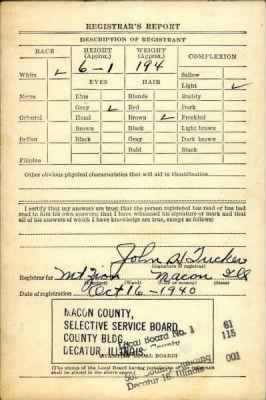 REGISTRAR'S REPORT
DESCRIPTION OF REGISTRANT
RACE
HEIGHT
(Approx.)
WEIGHT
(Approx.)
COMPLEXION
White ✓
6-1
194
Sallow
EYES
HAIR
Light ✓
Negro
Blue
Blonde
Ruddy
Gray ✓
Red
Dark
Oriental
Hazel
Brown ✓
Freckled
Brown
Black
Light brown
Indian
Black
Gray
Dark brown
Bald
Black
Filipino
Other obvious physical characteristics that will aid in identification
I certify that my answers are true; that the person registered has read or has had
read to him his own answers; that I have witnessed his signature or mark and that
all of his answers of which I have knowledge are true, except as follows:
John H. Tucker
(Signature of registrar)
Registrar for Mt Zion Macon Ill
(Precinct) (Ward) (City or County) (State)
Date of registration Oct 16 - 1940
MACON COUNTY,
SELECTIVE SERVICE BOARD
COUNTY BLDG.
DECATUR, ILLINOIS
Local Board No. 1
County
61
115
001
Building
Decatur 16, Illinois
(The stamp of the Local Board having jurisdiction of the registrant
shall be placed in the above space.)